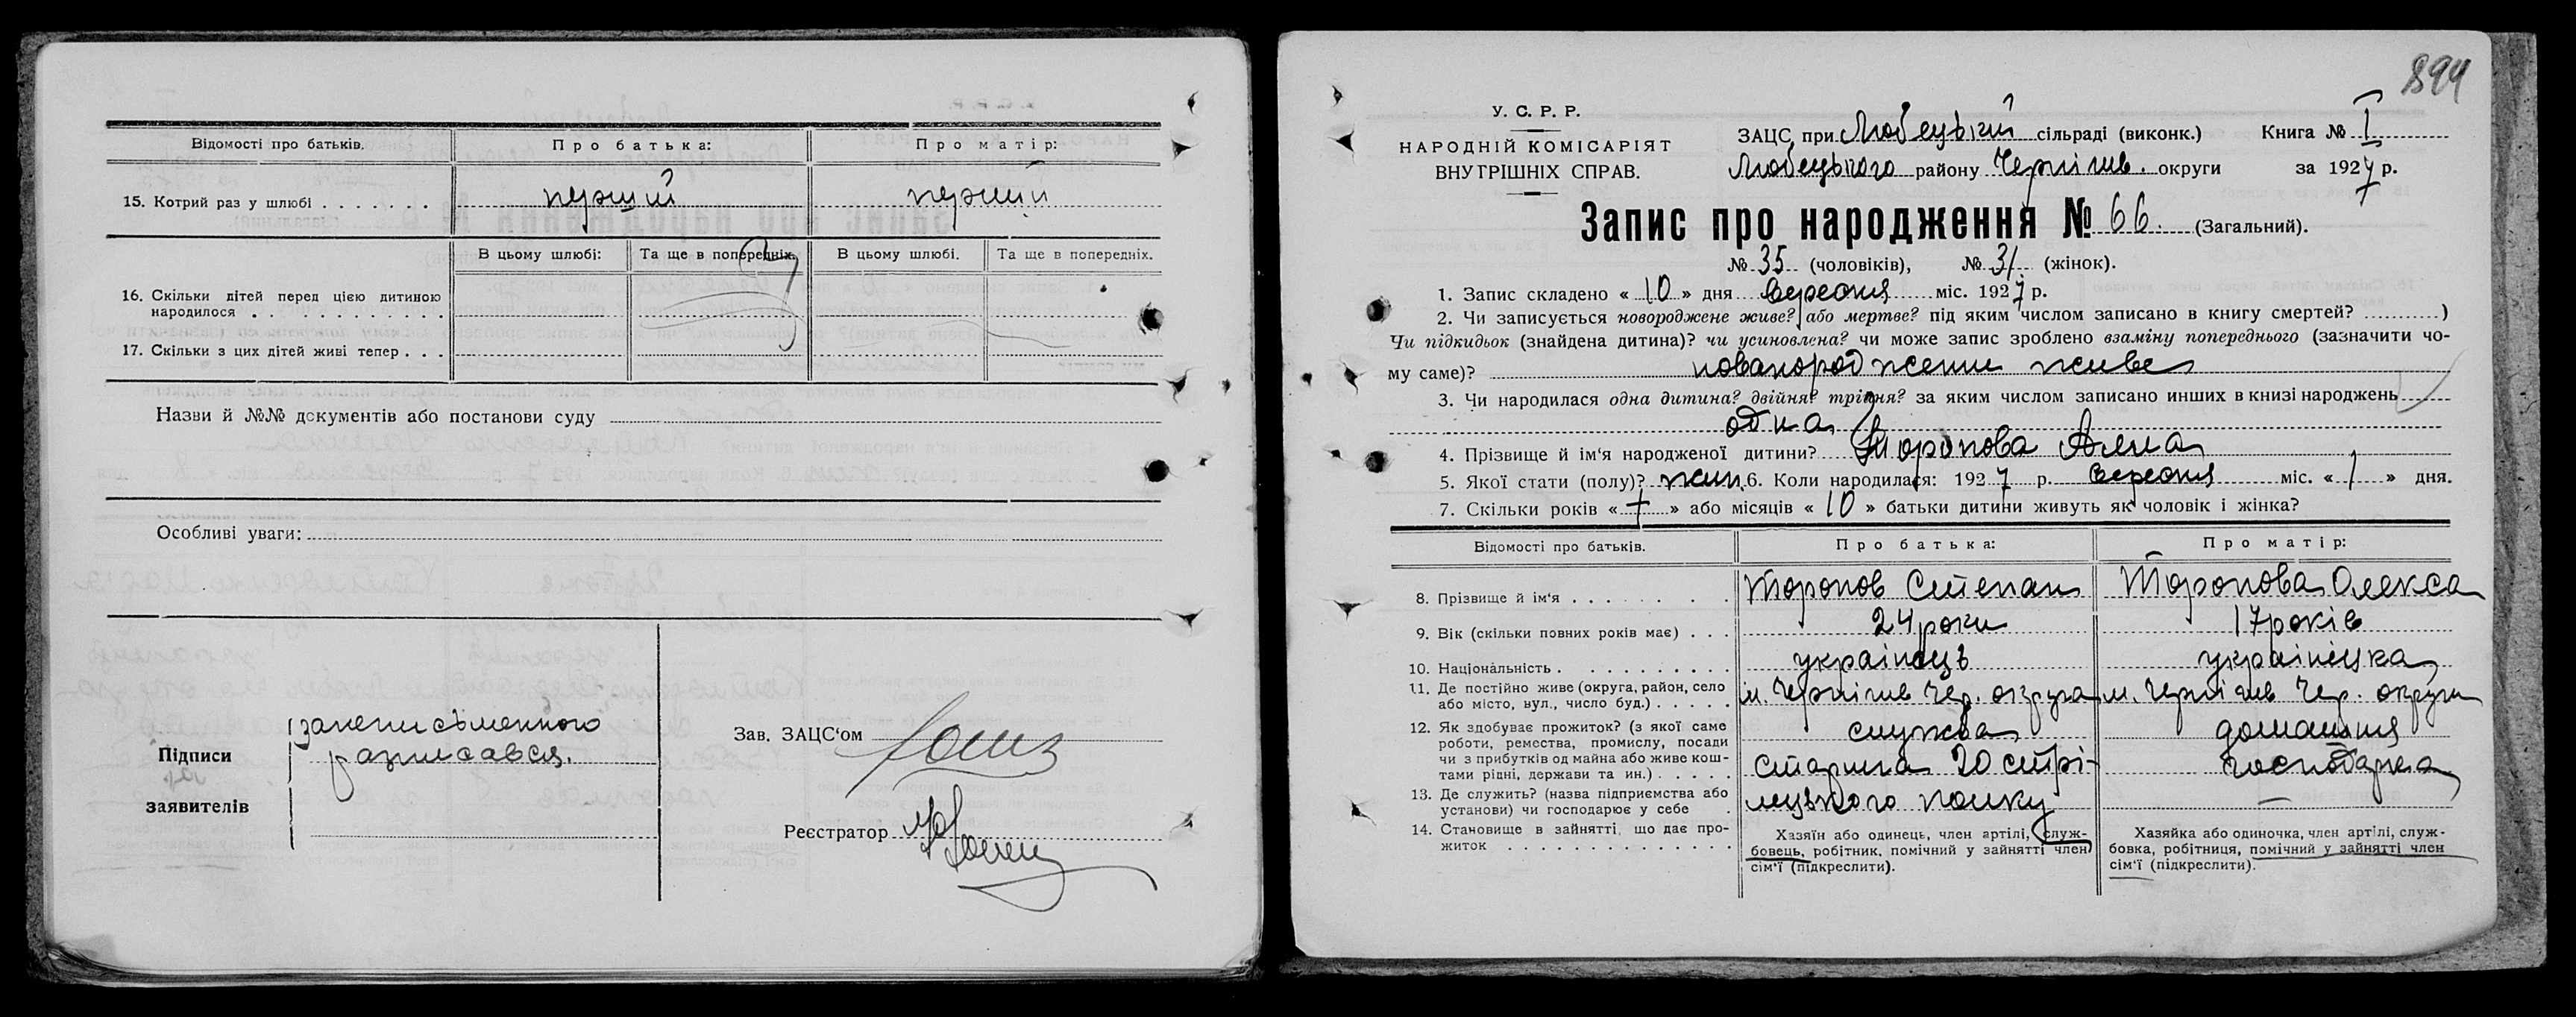 Відомості про батьків. Про батька: Про матір:
15. Котрий раз у шлюбі . . . . . . . перший перший
В цьому шлюбі: Та ще в попередніх. В цьому шлюбі. Та ще в попередніх.
16. Скільки дітей перед цією дитиною
народилося . . . . . . . . . . .
17. Скільки з цих дітей живі тепер . . .
Назви й №№ документів або постанови суду
Особливі уваги:
Підписи
заявителів
розписався.
Зав. ЗАЦС‘ом
Реєстратор
894
У. С. Р. Р.
НАРОДНІЙ КОМІСАРІЯТ
ВНУТРІШНІХ СПРАВ.
ЗАЦС при Любецький сільраді (виконк.) Книга № I
Любецького району Чернігів. округи за 1927 р.
Запис про народження № 66. (Загальний).
№ 35 (чоловіків), № 31 (жінок).
1. Запис складено « 10 » дня вересня міс. 1927 р.
2. Чи записується новороджене живе? або мертве? під яким числом записано в книгу смертей? ...........)
Чи підкидьок (знайдена дитина)? чи усиновлена? чи може запис зроблено взаміну попереднього (зазначити чо-
му саме)? живе
3. Чи народилася одна дитина? двійня? трійня? за яким числом записано инших в книзі народжень
одна
4. Прізвище й ім‘я народженої дитини? Торопова Алла
5. Якої стати (полу)? жін. 6. Коли народилася: 1927 р. вересня міс. « 1 » дня.
7. Скільки років « » або місяців « 10 » батьки дитини живуть як чоловік і жінка?
Відомості про батьків. Про батька: Про матір:
8. Прізвище й ім‘я . . . . . . . . Торопов Степан Торопова Олекса
9. Вік (скільки повних років має) . . . 24 роки 17 років
10. Національність . . . . . . . . . . українець українка
11. Де постійно живе (округа, район, село
або місто, вул., число буд.) . . . . . м. Чернігів Чер. округа м. Чернігів Чер. округи
12. Як здобуває прожиток? (з якої саме
роботи, ремества, промислу, посади
чи з прибутків од майна або живе кош-
тами рідні, держави та ин.) . . . . . служба домашня
Старшина 20 стрі- господарка
13. Де служить? (назва підприємства або
установи) чи господарює у себе . лецького полку —
14. Становище в зайнятті, що дає про-
житок . . . . . . . . . . . . . .
Хазяїн або одинець, член артілі, служ-
бовець, робітник, помічний у зайнятті член
сім‘ї (підкреслити).
Хазяйка або одиночка, член артілі, служ-
бовка, робітниця, помічний у зайнятті член
сім‘ї (підкреслити).